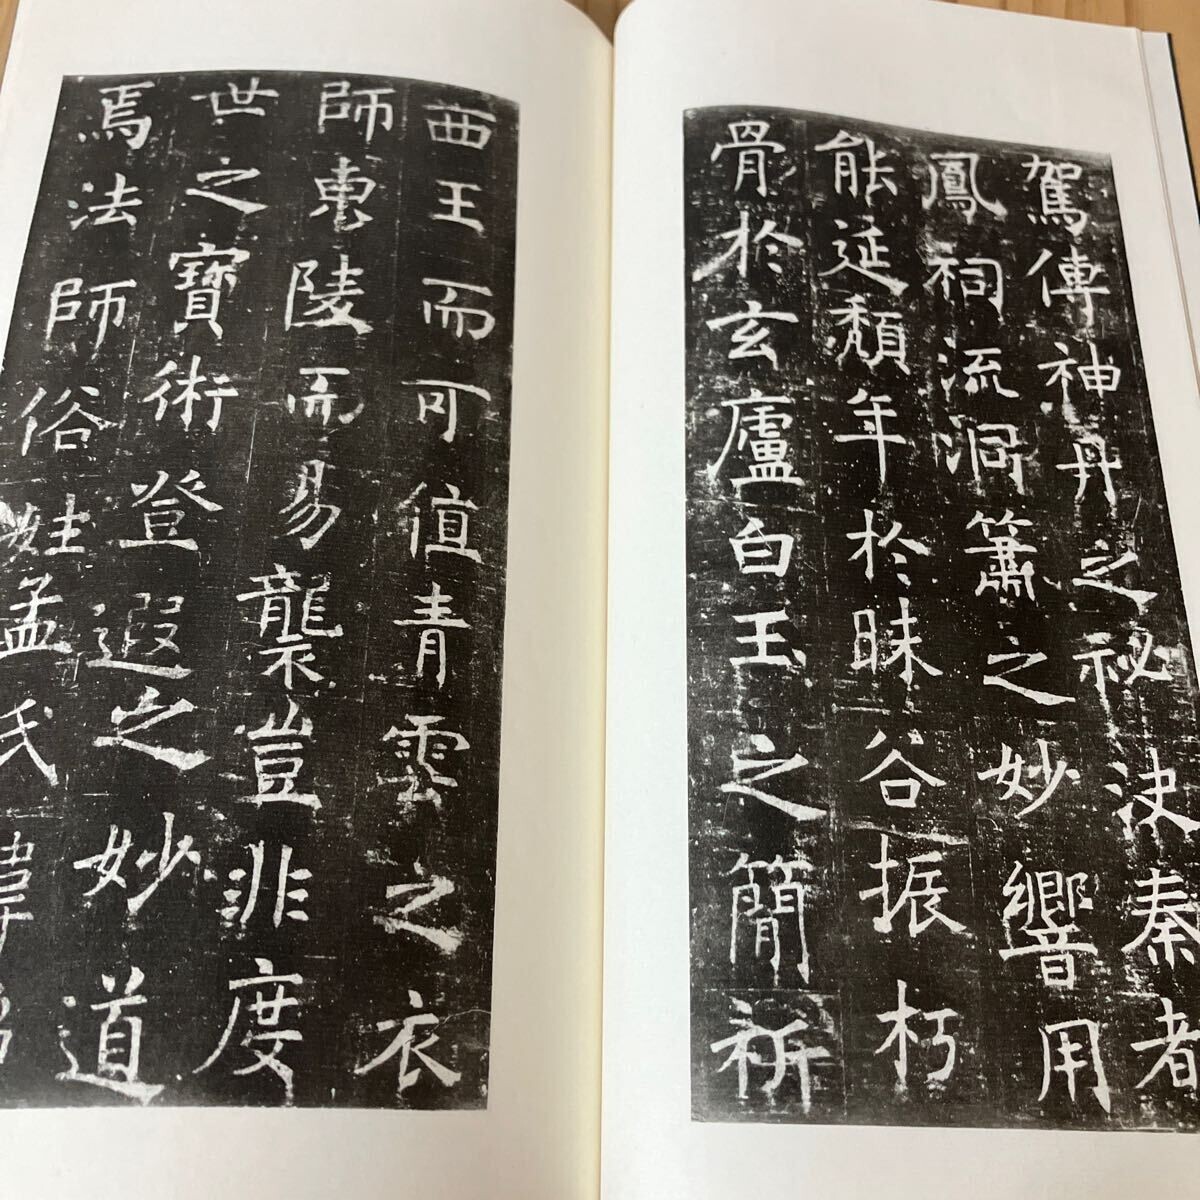 駕傳神丹之祕決秦者
鳳祠流洞簫之妙響用
能延頹年於昧谷振朽
骨於玄廬白玉之簡祈
西王而可值青雲之衣
師惠陵而易襲豈非度
世之寶術登遐之妙道
焉法師俗姓孟氏諱